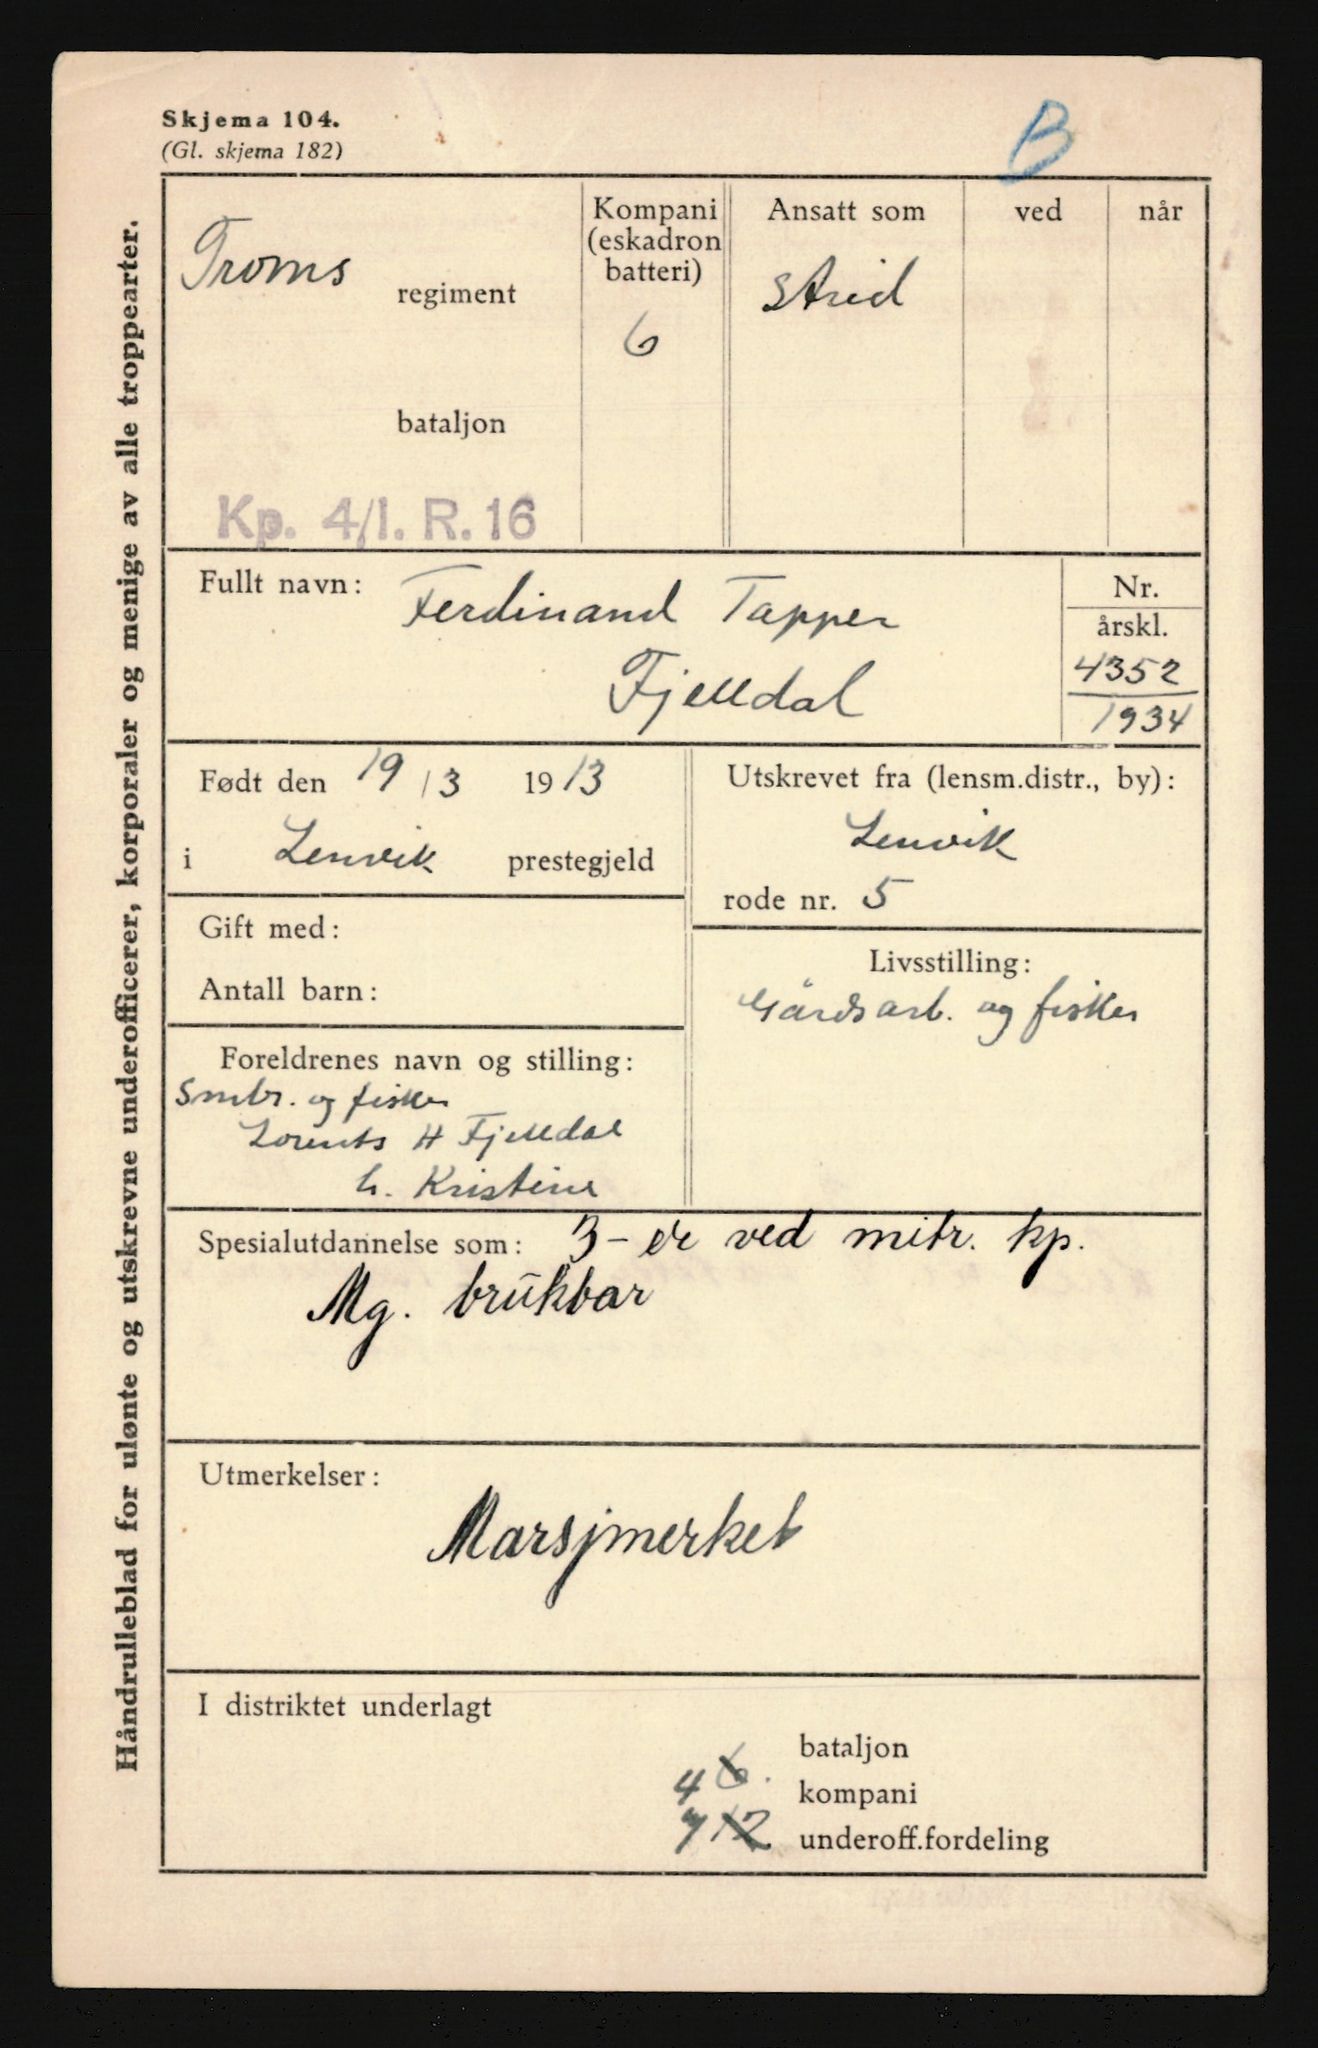 Skjema 104.
(Gl. skjema 182)
B
Håndrulleblad for ulønte og utskrevne underofficerer, korporaler og menige av alle troppearter.
Troms regiment
bataljon
Kp. 4/I. R. 16
Kompani
(eskadron
batteri)
6
Ansatt som
Strid
ved
når
Fullt navn: Ferdinand Tapper
Fjelldal
Nr.
årskl.
4352
1934
Født den 19/3 1913
i Lenvik prestegjeld
Utskrevet fra (lensm.distr., by):
Lenvik
rode nr. 5
Gift med:
Antall barn:
Livsstilling:
Gårdsarb. og fisker
Foreldrenes navn og stilling:
Smbr. og fisker
Lorents H Fjelldal
h. Kristine
Spesialutdannelse som: 3-er ved mitr. kp.
Mg. brukbar
Utmerkelser:
Marsjmerket
I distriktet underlagt
bataljon
4 6. kompani
7 12 underoff.fordeling